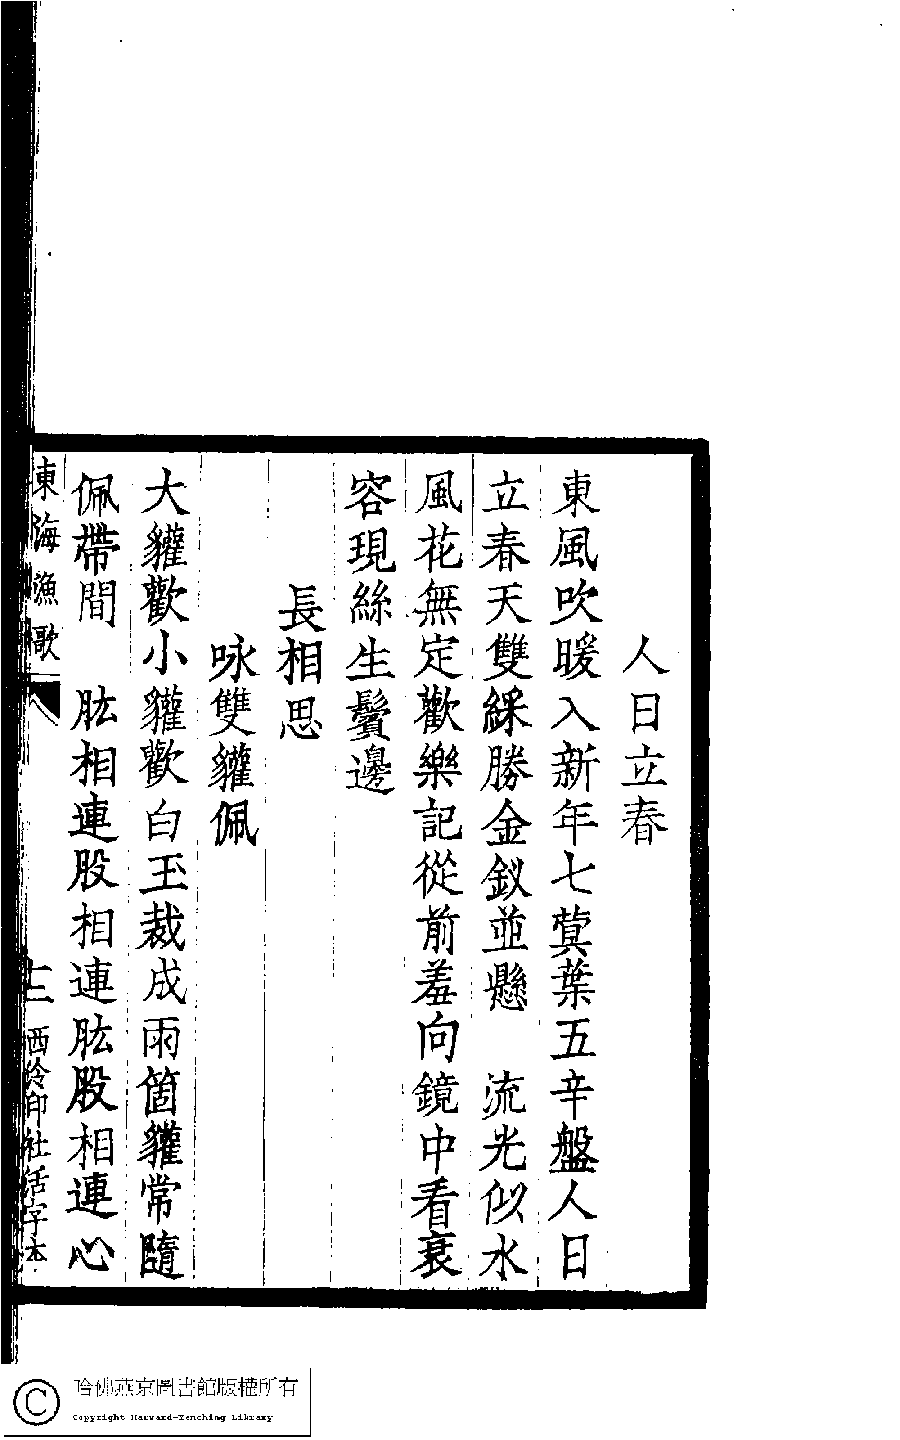 人日立春
東風吹暖入新年七蓂葉五辛盤人日
立春天雙綵勝金釵並懸　流光似水
風花無定歡樂記從前羞向鏡中看衰
容現絲生鬢邊
長相思
咏雙貛佩
大貛歡小貛歡白玉裁成兩箇貛常隨
佩帶間　肱相連股相連肱股相連心
東海漁歌
西泠印社活字本
哈佛燕京圖書館版權所有
Copyright Harvard-Yenching Library